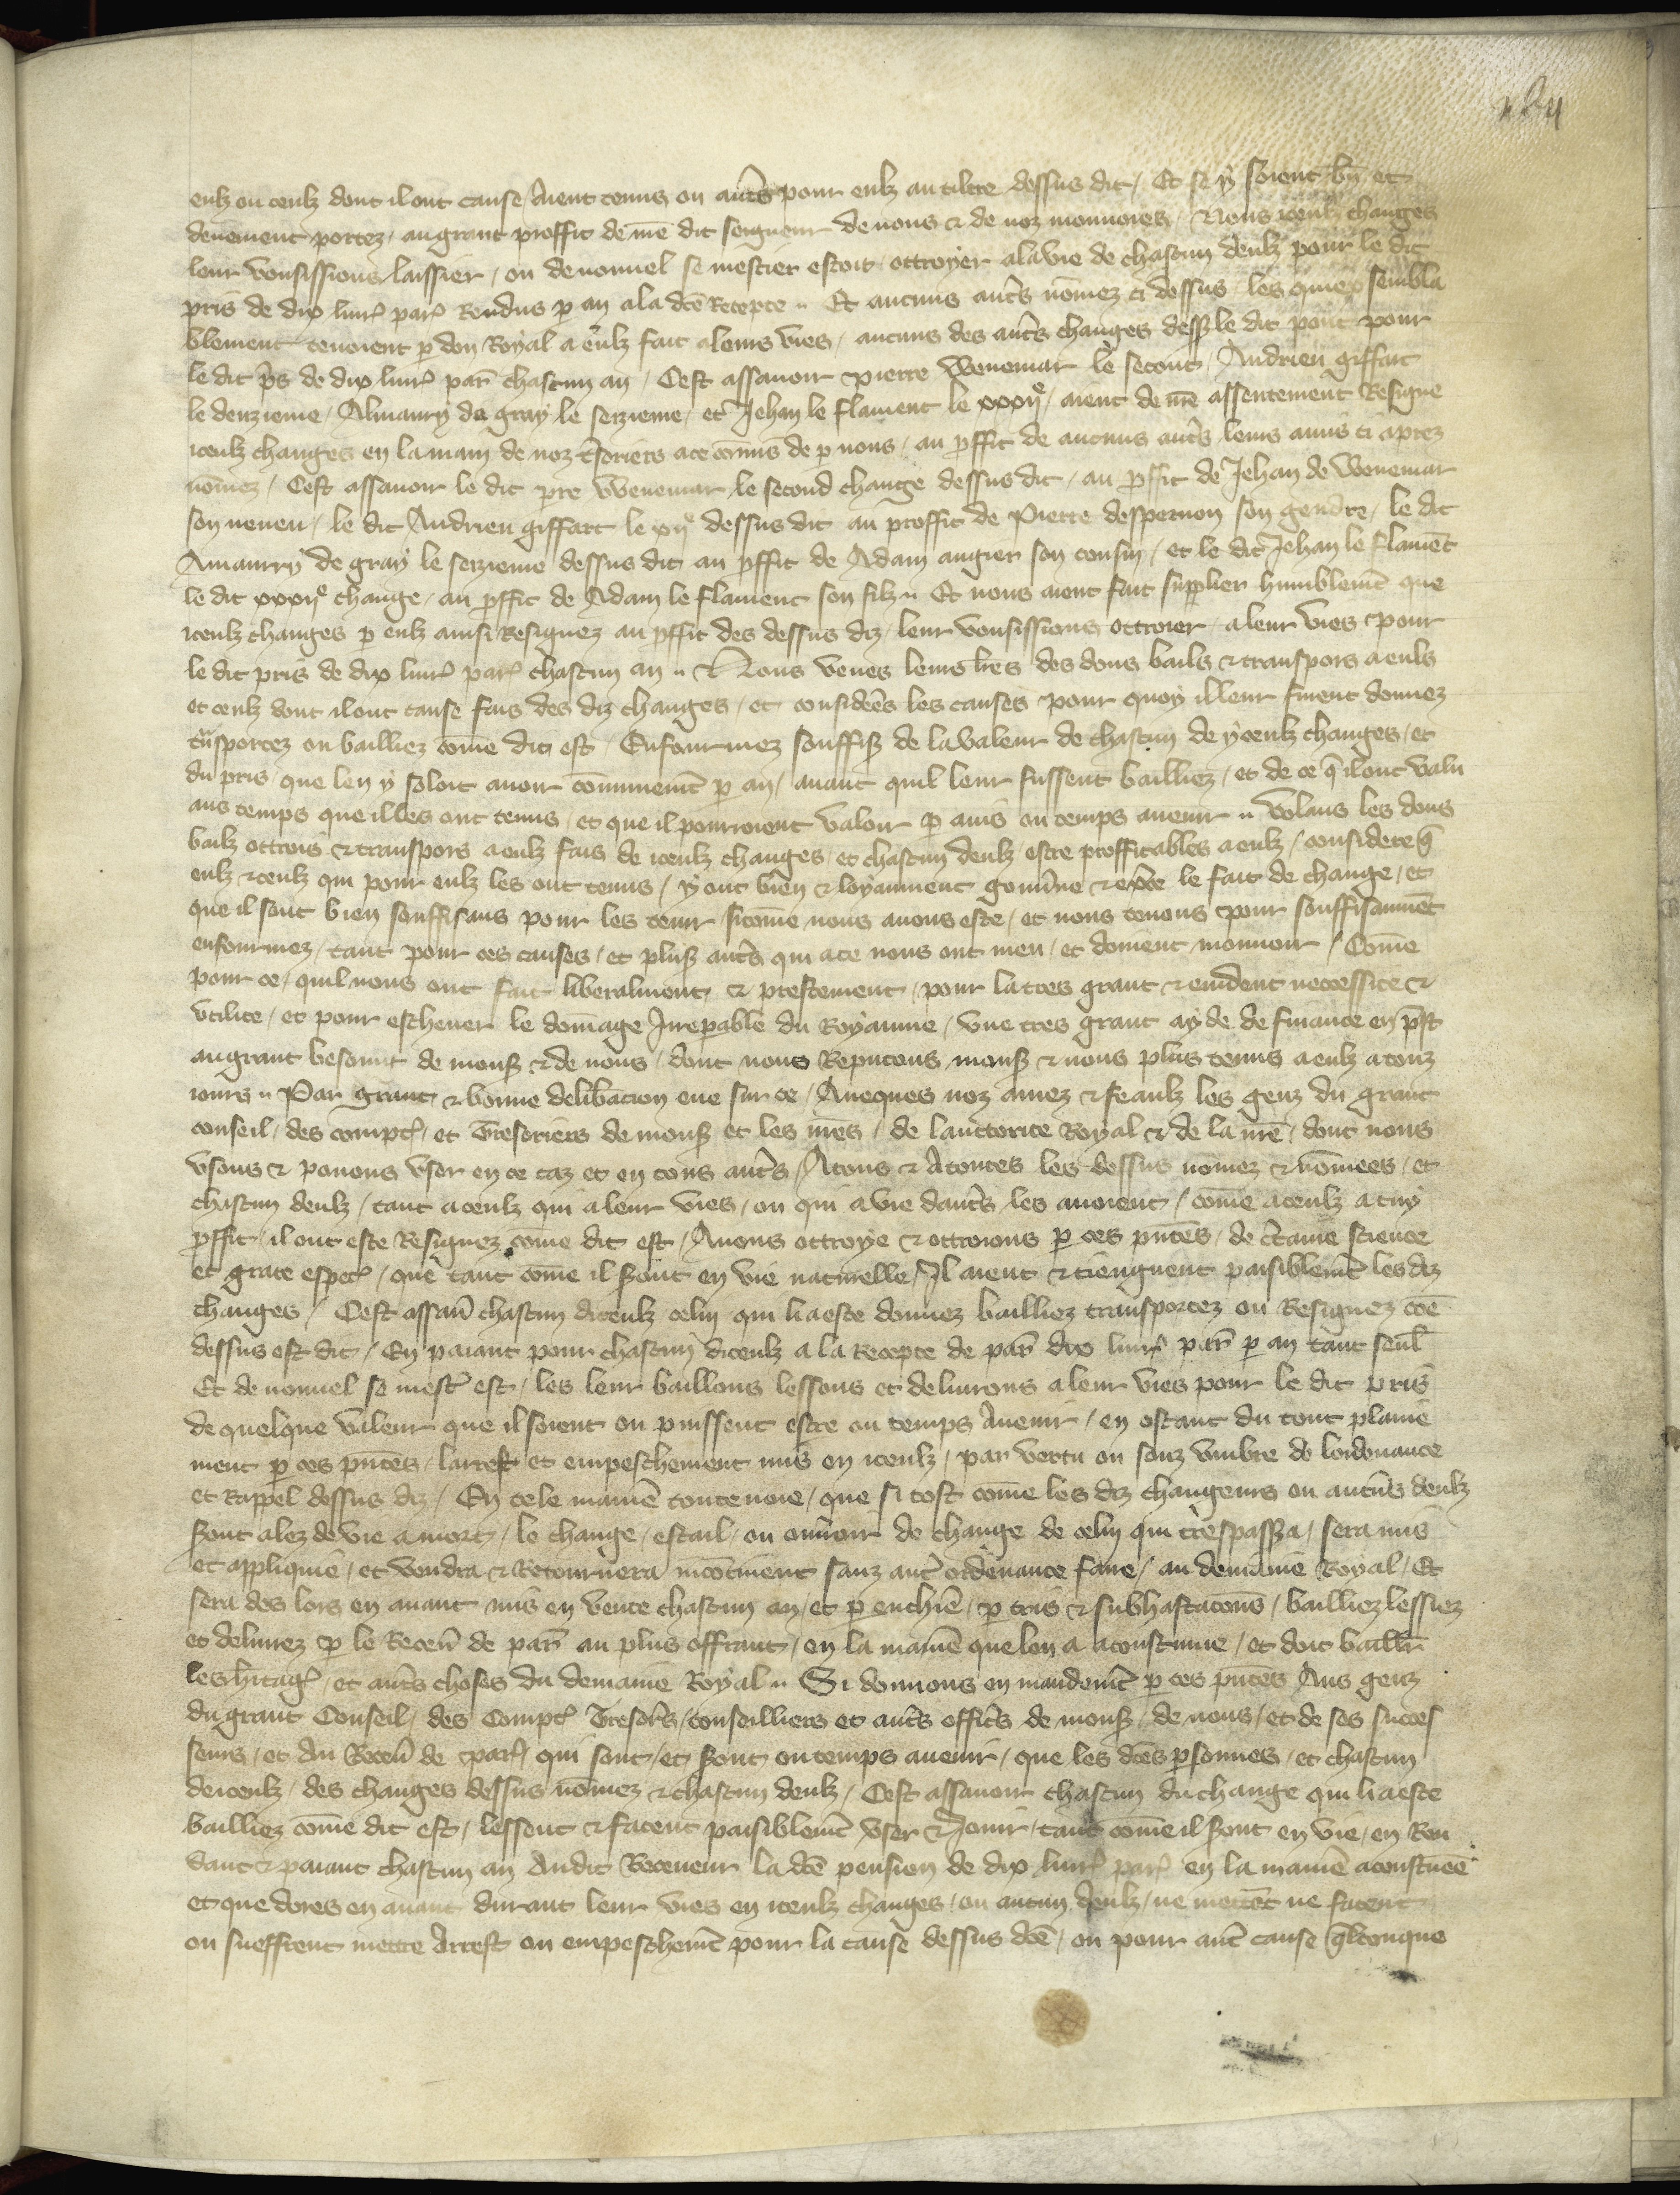 eulz ou ceulz dont il ont cause aient tenus ou autres pour eulz au tiltre dessus dit / Et se y soient bñ et
deuement portez / au grant proffit de mõ dit seigneur de nous & de noz monnoies / & nous iceulx changes
leur voulsissions laissier / ou de nouuel se mestier estoit ottroyer a la vie de chascun deulz pour le dit
pris de dix liur’ par’ Rendus p an a la dcẽ Recepte // Et aucuns autˢ nõmez ci dessus / les quiex sembla
blement tenoient p don Royal a eulz fait a leurs vies / aucuns des autˢ changes dessꝫ le dit pont pour
le dit ps de dix liur’ par’ chascun an / Cest assauoir Pierre Wenemar le secont / Andrieu giffart
le douzieme / Almaury de gray le seizieme / et Jehan le flament le xxxijᵉ / aient de nr̃e assentement Resigne
iceulz changes en la main de noz t̃soriers a ce cõmis de p nous / au pffit de aucuns autˢ leurs amis ci aprez
nõmez / Cest assauoir le dit pre Wenemar le second change dessus dit / au pffit de Jehan de Wenemar
son neueu / le dit Andrieu giffart le xijᵉ dessus dit au proffit de Pierre despernon son gendre / le dit
Amaurry de gray le seizieme dessus dit au pffit de Adam augier son cousin / et le dit Jehan le flamẽt
le dit xxxijᵉ change / au pffit de Adam le flament son filz // Et nous aient fait supplier humblemẽt que
iceulz changes p eulz ainsi Resignez au pffit des dessus diz / leur voulsissions ottroier / a leur vies pour
le dit pris de dix liur’ par’ chascun an // & Nous veues leurs lr̃es des dons bails & transpors a euls
et ceulz dont il ont cause fais des diz changes / et consideres les causes pour quoy il leur furent donnez
tñsportez ou bailliez cõme dit est / Enfourmez souffisꝫ de la valeur de chascun de yceulz changes / et
du pris que len y soloit auoir cõmunemẽt p an / auant quil leur fussent bailliez / et de ce q̃ il ont valu
aus temps que il les ont tenus / et que il pourroient valoir p auis ou temps auenir // Volans les dons
bailz ottrois & transpors a eulz fais de iceulz changes / et chascun deulz estre proffitables a eulz / considere q̃
eulz & ceulz qui pour eulz les ont tenus / y ont bien & loyaument gouũne & exẽce le fait de change / et
que il sont bien souffisans pour les tenir / sicõme nous auons este / et nous tenons pour souffisaumẽt
enfourmez / tant pour ces causes / et plusꝫ autˢ qui a ce nous ont meu / et doiuent mouuoir / Cõme
pour ce / quil nous ont fait liberalment & prestement / pour la tres grant & euident neccessite &
vtilite / et pour escheuer le dom̃age Jreparable du Royaume / vne tres grant ayde de finance en p̃st
au grant besoing de monsꝫ & de nous / dont nous Reputons monsꝫ & nous plus tenus a eulz a touz
iours // Par grant & bonne delibacion eue sur ce / Auecques noz amez & feaulz les genz du grant
conseil / des compt’ / et Tresoriers de monsꝫ et les nr̃es / de lauttorite Royal & de la nr̃e / dont nous
vsons & pouons vser en ce caz et en tous autˢ / A tous & A toutes les dessus nõmez & nõmees / et
chascun deulz / tant a ceulz qui a leur vies / ou qui a vie dautˢ les auoient / cõme a ceulz a cuy
pffit il ont este Resignez cõme dit est / Auons ottroye & ottroions p ces pñtes / de ct̃aine science
et grace espec’ / que tant cõme il sꝫont en vie naturelle / Jl aient & tiengnent paisiblemẽt les diz
changes / Cest assau chascun diceulz celui qui li a este donnez bailliez transportez ou Resignez cõe
dessus est dit / En paiant pour chascun diceulz a la Recepte de par’ dix liur’ par’ p an tant seul̃
Et de nouuel se mest’ est / les leur baillons lessons et deliurons a leur vies pour le dit pris
de quelque valeur que il soient ou puissent estre ou temps Auenir / en ostant du tout plaine
ment p ces pñtes / larrest et empeschement mis en iceulz / par vertu ou souz vmbre de lordenance
et Rappel dessus diz / En tele maniẽ toutenoie / que si tost cõme les diz changeurs ou aucũs deulz
sꝫont alez de vie a mort / le change / estail / ou ouuroir de change de celui qui trespassꝫa / sera mis
et appliquie / et vendra & Retournera incõtinent sanz aut’ ordenance faire / au demaine Royal / Et
sera des lors en auant mis en vente chascun an / et p enchiẽ / p cris & subhastacõns / bailliez lessiez
et deliurez p le Receũ de par’ au plus offrant / en la maniẽ que len a acoustume / et doit baill’r
les hitag’ / et autˢ choses du demaine Royal // Si donnons en mandemẽt p ces pñtes Aus genz
du grant Conseil / des Compt’ Tresorˢ / conseilliers et autˢ officˢ de monsꝫ / de nous / et de ses succes
seurs / et Au Receũ de par’ / qui sont / et sꝫont ou temps auenir / que les dcẽs psonnes / et chascun
de iceulz / des changes dessus nõmez & chascun deulz / Cest assauoir chascun du change qui li a este
bailliez cõme dit est / lessent & facent paisiblemẽt vser & Jouir / tant cõme il sꝫont en vie / en Ren
dant & paiant chascun an Audit Receueur la dcẽ pension de dix liur’ par’ en la maniẽ acoustumee
et que dores en auant durant leur vies en iceulz changes / ou aucun deulz / ne mettẽt ne facent
ou sueffrent mettre Arrest ou empeschemẽt pour la cause dessus dcẽ / ou pour aut’ cause q̃lconque